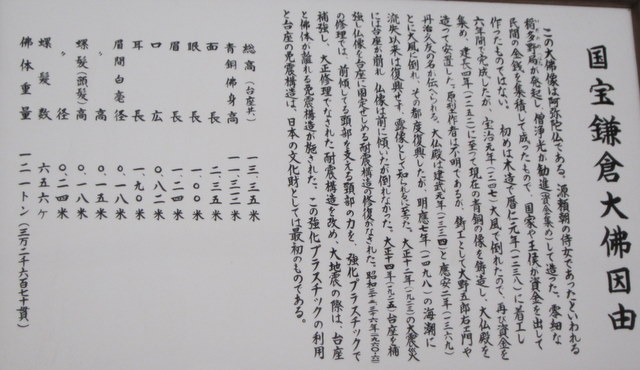 国宝鎌倉大佛因由
この大佛像は阿弥陀仏である。源頼朝の侍女であったといわれる
稲多野局が発起し、僧浄光が勧進(資金集め)して造った。零細な
民間の金銭を集積して成ったもので、国家や王侯が資金を出して
作ったものではない。初めは木造で暦仁元年(一二三八)に着工し
六年間で完成したが、宝治元年(一二四七)大風で倒れたので、再び資金を
集め、建長四年(一二五二)に至って現在の青銅の像を鋳造し、大仏殿を
造って安置した。原型作者は不明であるが、鋳工として大野五郎右エ門や
丹治久友の名が伝へられる。大仏殿は建武元年(一三三四)と應安二年(一三六九)
とに大風に倒れ、その都度復興したが、明應七年(一四九八)の海潮に
流失以来は復興せず、露像として知られるに至た。大正十二年(一九二三)の大震災
には台座が崩れ仏像は前に傾いたが倒れなかった。大正十四年(一九二五)台座を補
強し仏像を台座に固定せしめる耐震構造の修復がなされた。昭和三五・三六年(一九六〇・六一)
の修理では、前傾してる頭部を支える頸部の力を、強化プラスチックで
補強し、大正修理でなされた耐震構造を改め、大地震の際は、台座
と佛体が離れる免震構造が施された。この強化プラスチックの利用
と台座の免震構造は、日本の文化財としては最初のものである。
総高(台座共) 一三.三五米
青銅佛身高 一一.三一二米
面長 二.三五米
眼長 一.〇〇米
眉長 一.二四米
口広 〇.八二米
耳長 一.九〇米
眉間白毫径 〇.一八米
〃 高 〇.一五米
螺髪(頭髪)高 〇.一八米
〃 径 〇.二四米
螺髪数 六五六ケ
佛体重量 一二一トン(三万二千六百七十貫)